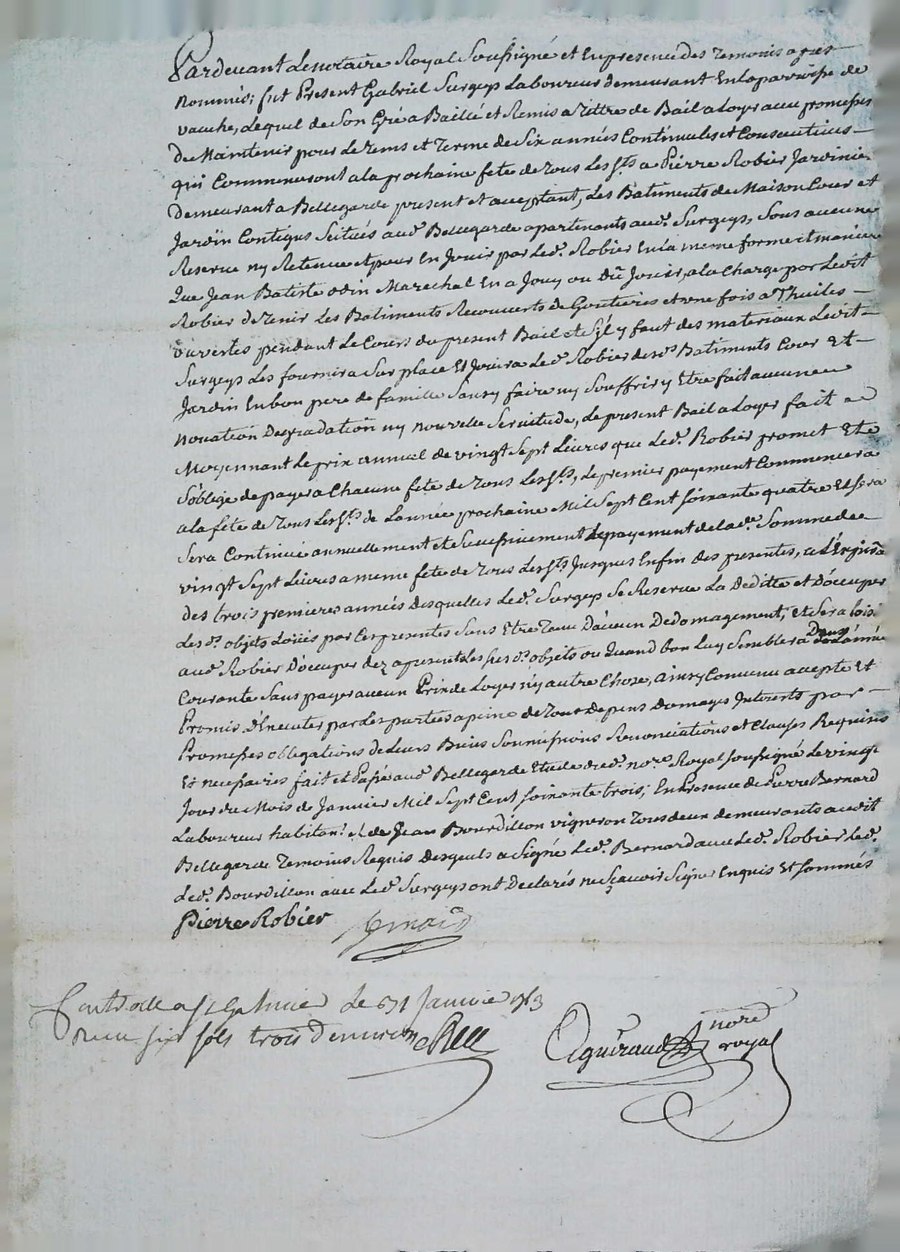 Pardevant Le notaire Royal Soussigné et En presence des temoins apres
nommés; fut Present Gabriel Surgeys Laboureur demeurant En la parroisse de
vauche, Lequel de Son Gré a Baillié et Remis a tittre de Bail a Loyer avec promesses
de Maintenir pour Le tems et terme de Six années Continuelles et Consecutives
qui Commenceront a la prochaine fete de tous Les Sts a Pierre Robier Jardinier
demeurant a Bellegarde present et acceptant, Les Batiments de Maison Cour et
Jardin Contigus Scitués aud. Bellegarde apartenants aud. Surgeys, Sans aucune
Reserve ny Retenue et pour En Jouir par Led. Robier En la meme forme et maniere
Que Jean Batiste odin Marechal En a Jouy ou dû Jouir, a la Charge par Ledit
Robier de tenir Les Batiments Recouverts de Goutieres et une fois a Thuiles
ouvertes pendant Le Cours du present Bail et S'il y faut des materiaux Ledit
Surgeys Les fournira Sur place Et Jouira Led. Robier desd. Batiments Cour Et
Jardin En bon pere de famille Sans y faire ny Souffrir y Etre fait aucune
novation Degradation ny nouvelle Servitude, Le present Bail a Loyer fait
Moyennant Le prix annuel de vingt Sept Livres que Led. Robier promet Et
S'oblige de payer a Chacune fete de tous Les Sts, Le premier payement Commencera
a la fete de tous Les Sts de L'année prochaine Mil Sept Cent Soixante quatre Et
Sera Continué annuellement et Successivement Le payement de lad. Somme de
vingt Sept Livres a meme fete de tous Les Sts Jusques En fin des presentes,
des trois premieres années desquelles Led. Surgeys Se Reserve La Deditte et D'occuper
Lesd. objets Loüés par Ces presentes Sans Etre tenu D'aucun Dedomagement; Et Sera Loisi.
aud. Robier D'occuper dez apresent Les susd. objets ou Quand bon Luy Semblera Dans L'année
Courante Sans payer aucun Prix de Loyer n'y autre Chose, ainsy Convenu accepté Et
Promis D'Executer par Les parties a peine de tous Depens Domages Interets par
Promesses obligations de Leurs Biens Soumissions Renonciations et Clauses Requises
Et necessaires fait et Passé aud. Bellegarde Etude dud. nore. Royal soussigné Le vingt
Jour du Mois de Janvier Mil Sept Cent Soixante trois; En Presence de Pierre Bernard
Laboureur habitant. et de Jean Bourdillon vigneron tous deux demeurants audit
Bellegarde temoins Requis desquels a Signé Led. Bernard avec Led. Robier
Led. Bourdillon avec Led. Surgeys ont Declarés ne Sçavoir Signer Enquis Et Sommés
Pierre Robier
Controllé a St Galmier Le 31 Janvier 1763
Recu six sols trois deniers
nore
royal